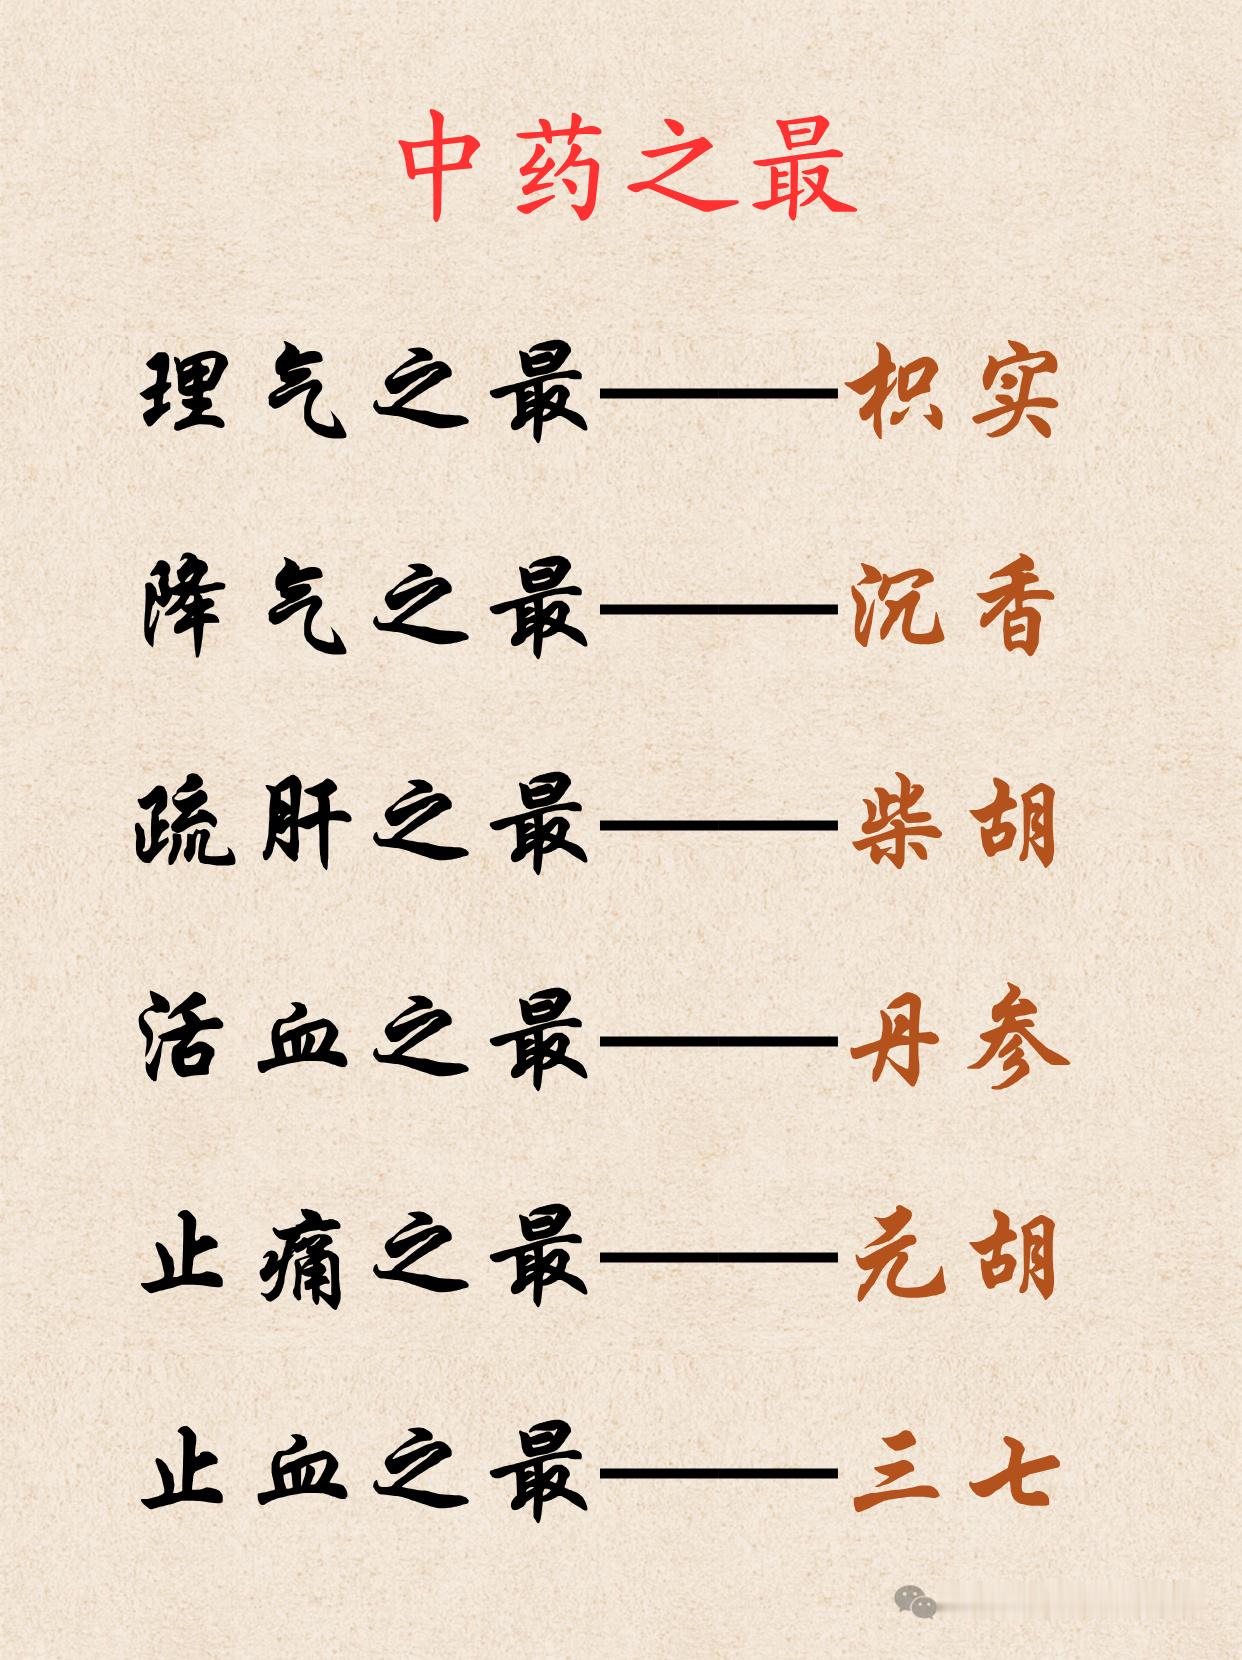 中药之最
理气之最——枳实
降气之最——沉香
疏肝之最——柴胡
活血之最——丹参
止痛之最——元胡
止血之最——三七